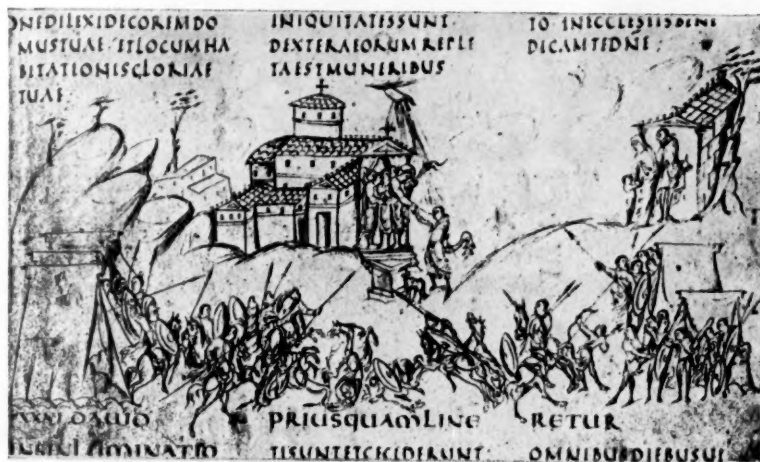 NEDILEXIDECOREMDO
MUSTUAE·ETLOCUMHA
BITATIONISGLORIAE
TUAE
INIQUITATESSUNT·
DEXTERAEORUMREPLE
TAESTMUNERIBUS
TO·INECCLESIISBENE
DICAMTEDNE;
DAVID PRIUSQUAMLINE RETUR
TISUNTETCECIDERUNT· OMNIBUSDIEBUSUI